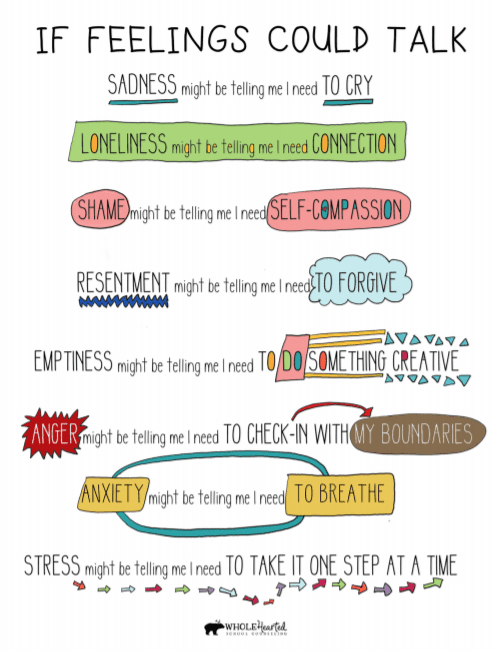 IF FEELINGS COULD TALK
SADNESS might be telling me I need TO CRY
LONELINESS might be telling me I need CONNECTION
SHAME might be telling me I need SELF-COMPASSION
RESENTMENT might be telling me I need TO FORGIVE
EMPTINESS might be telling me I need TO DO SOMETHING CREATIVE
ANGER might be telling me I need TO CHECK-IN WITH MY BOUNDARIES
ANXIETY might be telling me I need TO BREATHE
STRESS might be telling me I need TO TAKE IT ONE STEP AT A TIME
WHOLEHearted
SCHOOL COUNSELING